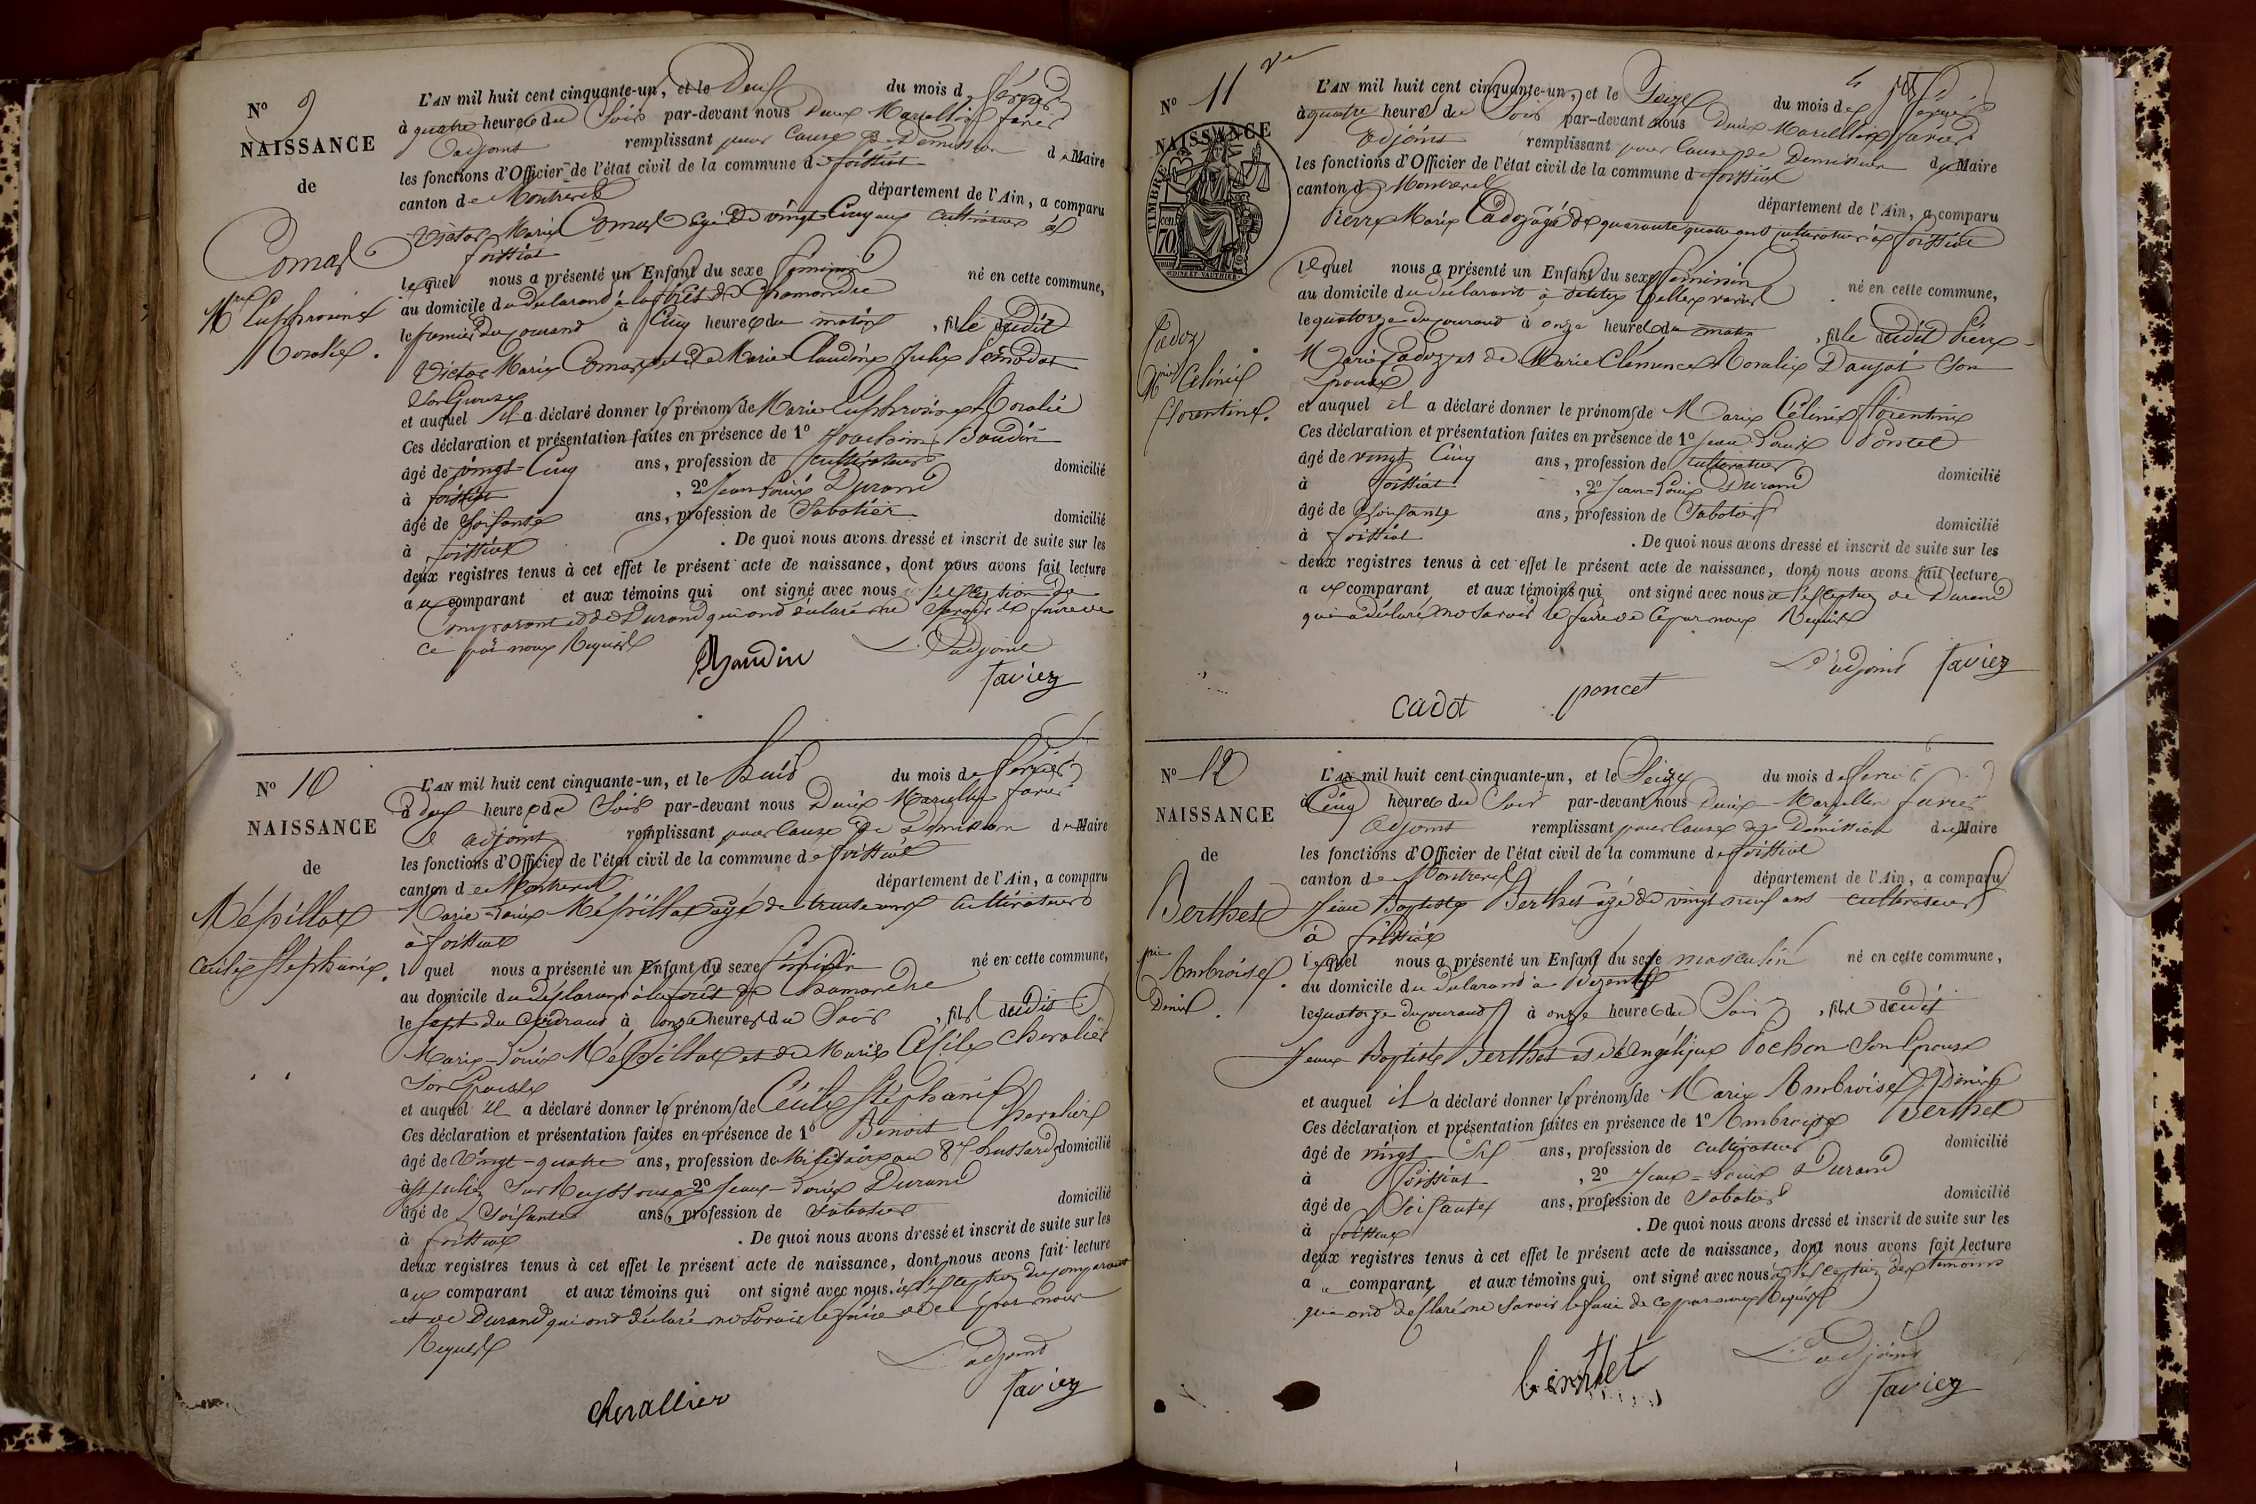 N° 9
NAISSANCE
de
Comas
Mie Euphrosine
Rosalie.
L'AN mil huit cent cinquante-un, et le Deux du mois de février
à quatre heures du Soir par-devant nous Denix Marcellin favier
adjoint remplissant pour Cause de Démission du Maire
les fonctions d'Officier de l'état civil de la commune de foissiat
canton de Montrevel département de l'Ain, a comparu
Victor Marie Comas agé de vingt Cinq ans cultivateur à
foissiat
lequel nous a présenté un Enfant du sexe féminin né en cette commune,
au domicile du déclarant à la forêt de Chamandre
le premier du courant à Cinq heures du matin, fille dudit
Victor Marie Comas et de Marie Claudine Julie
Son Epouse
et auquel il a déclaré donner les prénoms de Marie Euphrosine Rosalie
Ces déclaration et présentation faites en présence de 1° Joachim Baudin
âgé de vingt-Cinq ans, profession de cultivateur domicilié
à foissiat, 2° Jean Louis Durand
âgé de Soixante ans, profession de Sabotier domicilié
à foissiat. De quoi nous avons dressé et inscrit de suite sur les
deux registres tenus à cet effet le présent acte de naissance, dont nous avons fait lecture
au comparant et aux témoins qui ont signé avec nous à l'exception de
Comparant et de Durand qui ont déclaré ne Savoir le faire de
ce par nous Requis
Baudin L'adjoint
favier
N° 10
NAISSANCE
de
Mépillat
Cécile Stéphanie.
L'AN mil huit cent cinquante-un, et le huit du mois de février
à deux heures du Soir par-devant nous Denix Marcellin favier
adjoint remplissant pour Cause de Démission du Maire
les fonctions d'Officier de l'état civil de la commune de foissiat
canton de Montrevel département de l'Ain, a comparu
Marie-Louis Mépillat agé de trente ans cultivateur
à foissiat
lequel nous a présenté un Enfant du sexe féminin né en cette commune,
au domicile du déclarant à la forêt de Chamandre
le sept du Courant à onze heures du Soir, fille dudit
Marie-Louis Mépillat et de Marie Cécile Chevalier
Son Epouse
et auquel il a déclaré donner les prénoms de Cécile Stéphanie
Ces déclaration et présentation faites en présence de 1° Benoit Chevalier
âgé de Vingt-quatre ans, profession de Militaire au 8e hussard domicilié
à St Julien Sur Reyssouze 2° Jean-Louis Durand
âgé de Soixante ans, profession de Sabotier domicilié
à foissiat. De quoi nous avons dressé et inscrit de suite sur les
deux registres tenus à cet effet le présent acte de naissance, dont nous avons fait lecture
au comparant et aux témoins qui ont signé avec nous à l'exception du comparant
et de Durand qui ont déclaré ne Savoir le faire de ce par nous
Requis
L'adjoint
chevallier favier
N° 11
NAISSANCE
TIMBRE
70
Cadoz
Mie Célinie
florentine.
L'AN mil huit cent cinquante-un, et le Seize du mois de février
à quatre heures du Soir par-devant nous Denix Marcellin favier
adjoint remplissant pour Cause de Démission du Maire
les fonctions d'Officier de l'état civil de la commune de foissiat
canton de Montrevel département de l'Ain, a comparu
Pierre Marie Cadoz agé de quarante quatre ans cultivateur à foissiat
lequel nous a présenté un Enfant du sexe féminin né en cette commune,
au domicile du déclarant à
le quatorze du courant à onze heures du matin, fille dudit Pierre
Marie Cadoz et de Marie Clémence Rosalie Daujat Son
Epouse
et auquel il a déclaré donner les prénoms de Marie Célinie florentine
Ces déclaration et présentation faites en présence de 1° Jean Louis Poncet
âgé de vingt Cinq ans, profession de cultivateur domicilié
à foissiat, 2° Jean-Louis Durand
âgé de Soixante ans, profession de Sabotier domicilié
à foissiat. De quoi nous avons dressé et inscrit de suite sur les
deux registres tenus à cet effet le présent acte de naissance, dont nous avons fait lecture
au comparant et aux témoins qui ont signé avec nous à l'exception de Durand
qui a déclaré ne Savoir le faire de Ce par nous Requis
L'adjoint favier
cadot poncet
N° 12
NAISSANCE
de
Berthet
Mie Ambroise
Denis.
L'AN mil huit cent cinquante-un, et le Seize du mois de février
à Cinq heures du Soir par-devant nous Denix Marcellin favier
adjoint remplissant pour Cause de Démission du Maire
les fonctions d'Officier de l'état civil de la commune de foissiat
canton de Montrevel département de l'Ain, a comparu
Jean Baptiste Berthet agé de vingt neuf ans cultivateur
à foissiat
lequel nous a présenté un Enfant du sexe masculin né en cette commune,
au domicile du déclarant à
le quatorze du courant à onze heures du Soir, fils dudit
Jean Baptiste Berthet et d'Angélique Pochon Son Epouse
et auquel il a déclaré donner les prénoms de Marie Ambroise Denis
Ces déclaration et présentation faites en présence de 1° Ambroise Berthet
âgé de vingt Six ans, profession de cultivateur domicilié
à foissiat, 2° Jean-Louis Durand
âgé de Soixante ans, profession de Sabotier domicilié
à foissiat. De quoi nous avons dressé et inscrit de suite sur les
deux registres tenus à cet effet le présent acte de naissance, dont nous avons fait lecture
au comparant et aux témoins qui ont signé avec nous à l'exception des témoins
qui ont déclaré ne Savoir le faire de ce par nous Requis
L'adjoint
berthet favier